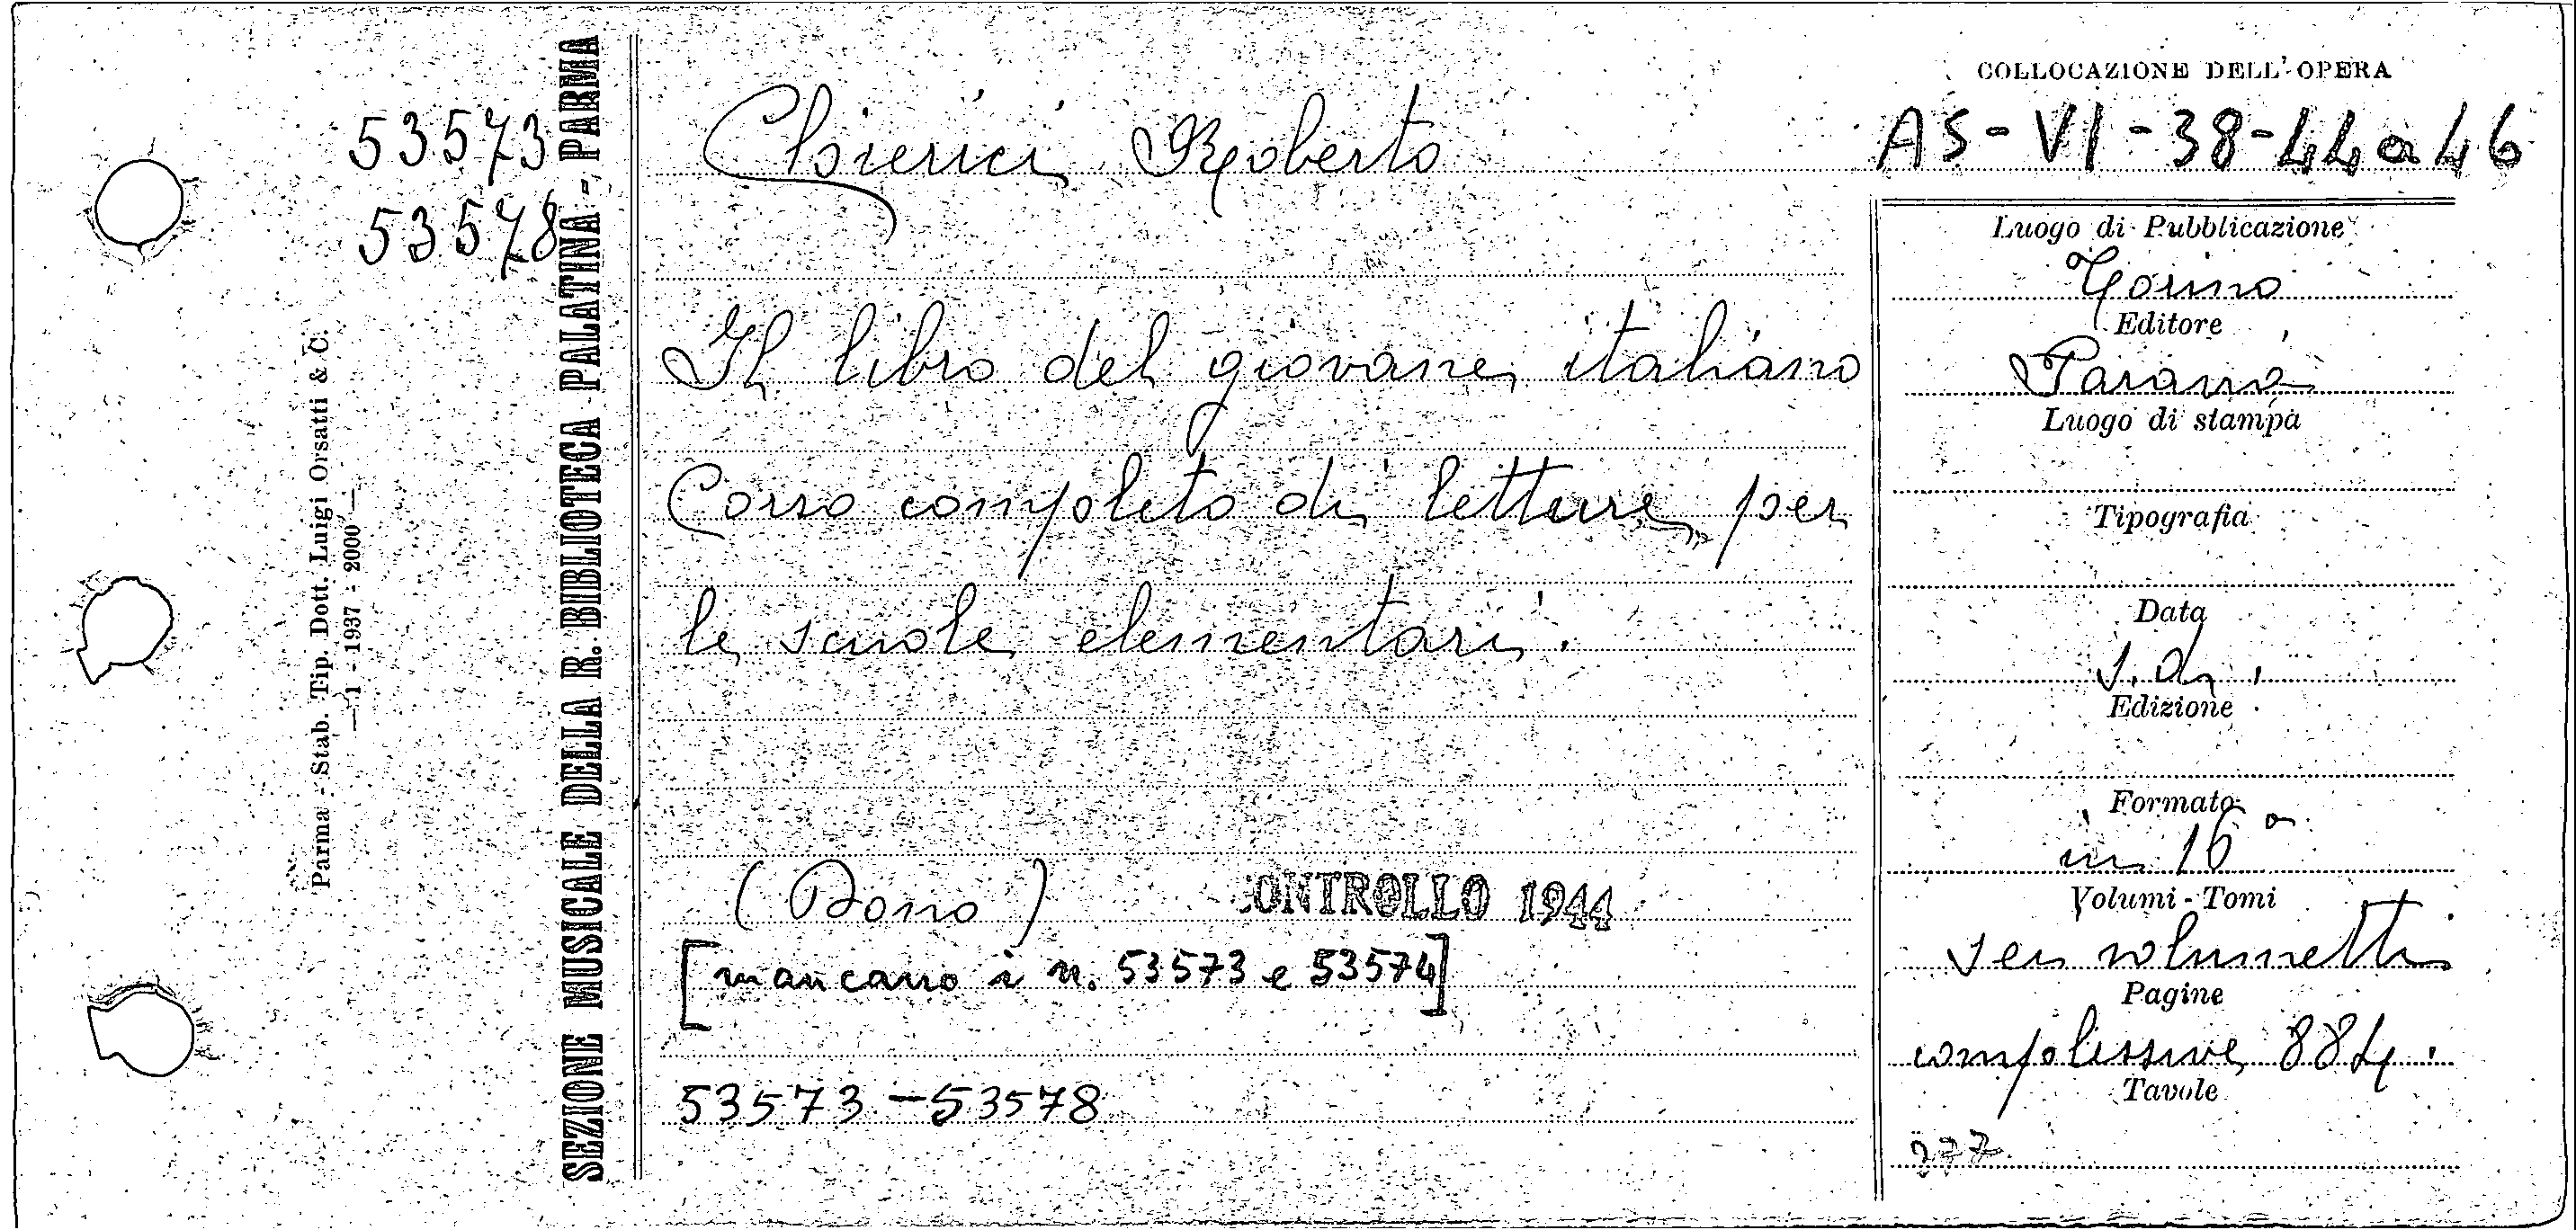 53573
53578
Parma - Stab. Tip. Dott. Luigi Orsatti & C.
— 1 - 1937 - 2000 —
SEZIONE MUSICALE DELLA R. BIBLIOTECA PALATINA - PARMA
Chierici Roberto
Il libro del giovane italiano
Corso completo di letture per
le scuole elementari.
(Dono)
CONTROLLO 1944
[mancano i n. 53573 e 53574]
53573 - 53578
COLLOCAZIONE DELL'OPERA
AS - VI - 38 - 44 a 46
Luogo di Pubblicazione
Torino
Editore
Paravia
Luogo di stampa
Tipografia
Data
s.d.
Edizione
Formato
in 16°
Volumi - Tomi
sei volumetti
Pagine
complessive 884.
Tavole
277